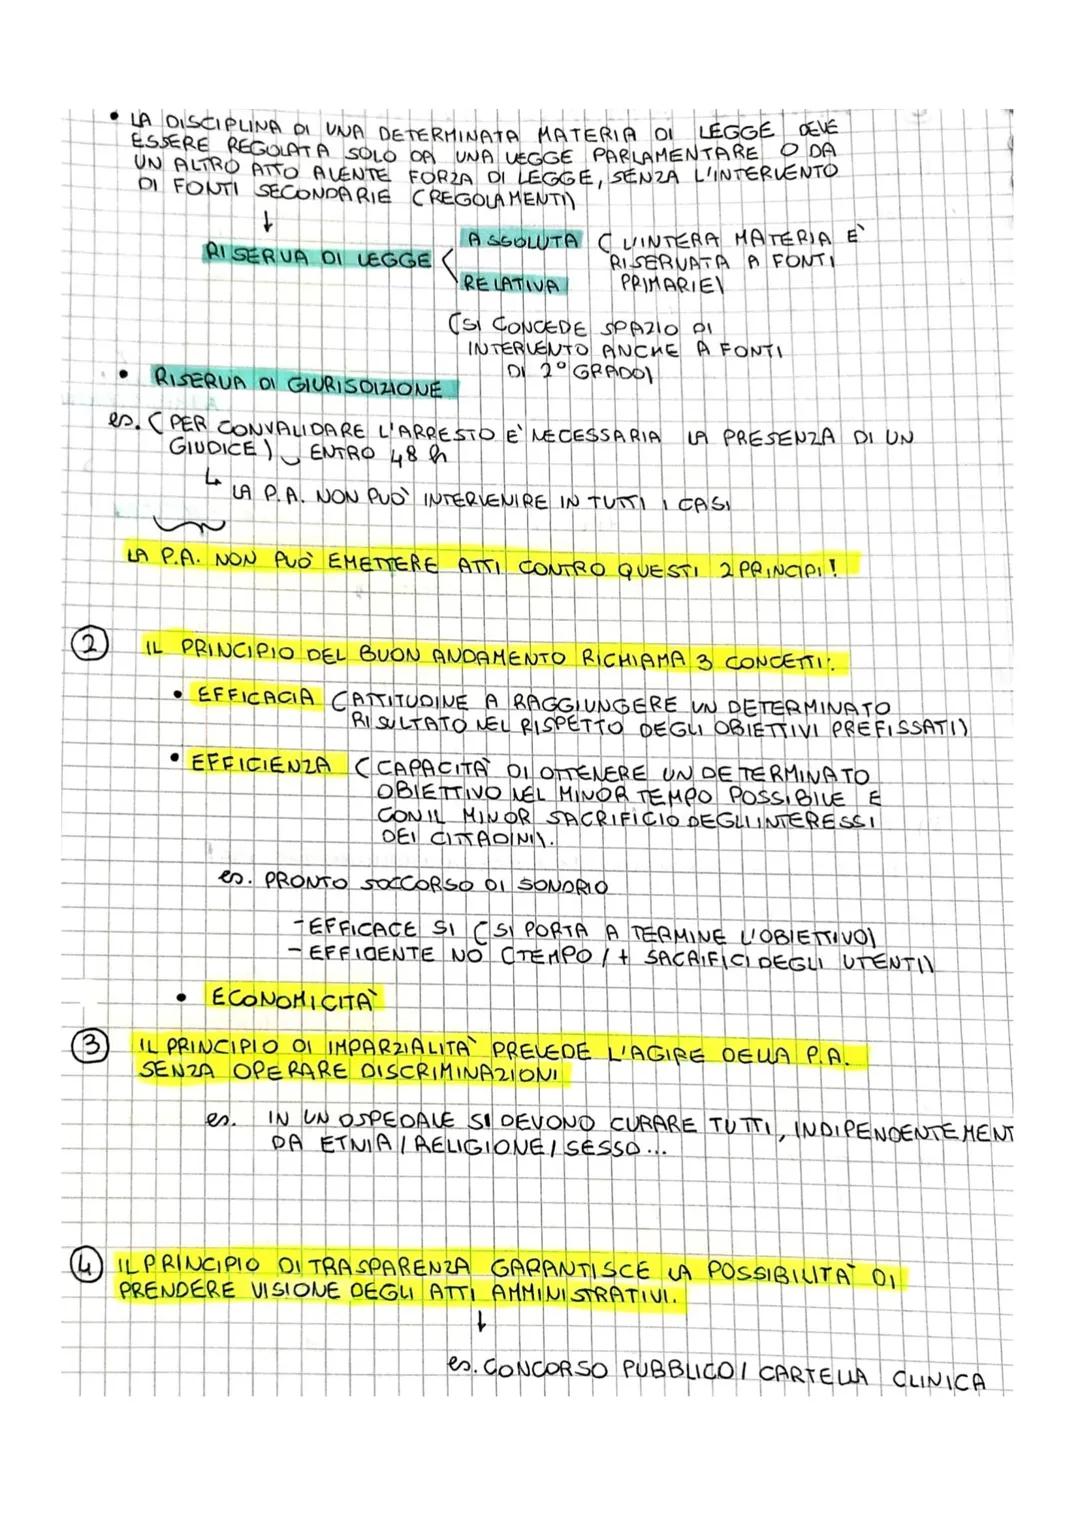 • LA DISCIPLINA DI UNA DETERMINATA MATERIA DI LEGGE DEVE
ESSERE REGOLATA SOLO DA UNA LEGGE PARLAMENTARE O DA
UN ALTRO ATTO AVENTE FORZA DI LEGGE, SENZA L'INTERVENTO
DI FONTI SECONDARIE (REGOLAMENTI)
↓
RISERVA DI LEGGE < ASSOLUTA (L'INTERA MATERIA E'
RISERVATA A FONTI
PRIMARIE)
RELATIVA
(SI CONCEDE SPAZIO DI
INTERVENTO ANCHE A FONTI
DI 2° GRADO)
• RISERVA DI GIURISDIZIONE
es. (PER CONVALIDARE L'ARRESTO E' NECESSARIA LA PRESENZA DI UN
GIUDICE) ENTRO 48 h
↳ LA P.A. NON PUO' INTERVENIRE IN TUTTI I CASI
LA P.A. NON PUO' EMETTERE ATTI CONTRO QUESTI 2 PRINCIPI!
2 IL PRINCIPIO DEL BUON ANDAMENTO RICHIAMA 3 CONCETTI:
• EFFICACIA (ATTITUDINE A RAGGIUNGERE UN DETERMINATO
RISULTATO NEL RISPETTO DEGLI OBIETTIVI PREFISSATI)
• EFFICIENZA (CAPACITA' DI OTTENERE UN DETERMINATO
OBIETTIVO NEL MINOR TEMPO POSSIBILE E
CON IL MINOR SACRIFICIO DEGLI INTERESSI
DEI CITTADINI).
es. PRONTO SOCCORSO DI SONDRIO
- EFFICACE SI (SI PORTA A TERMINE L'OBIETTIVO)
- EFFICIENTE NO (TEMPO / + SACRIFICI DEGLI UTENTI)
• ECONOMICITA'
3 IL PRINCIPIO DI IMPARZIALITA' PREVEDE L'AGIRE DELLA P.A.
SENZA OPERARE DISCRIMINAZIONI
es. IN UN OSPEDALE SI DEVONO CURARE TUTTI, INDIPENDENTEMENT
DA ETNIA / RELIGIONE / SESSO...
4 IL PRINCIPIO DI TRASPARENZA GARANTISCE LA POSSIBILITA' DI
PRENDERE VISIONE DEGLI ATTI AMMINISTRATIVI.
↓
es. CONCORSO PUBBLICO / CARTELLA CLINICA